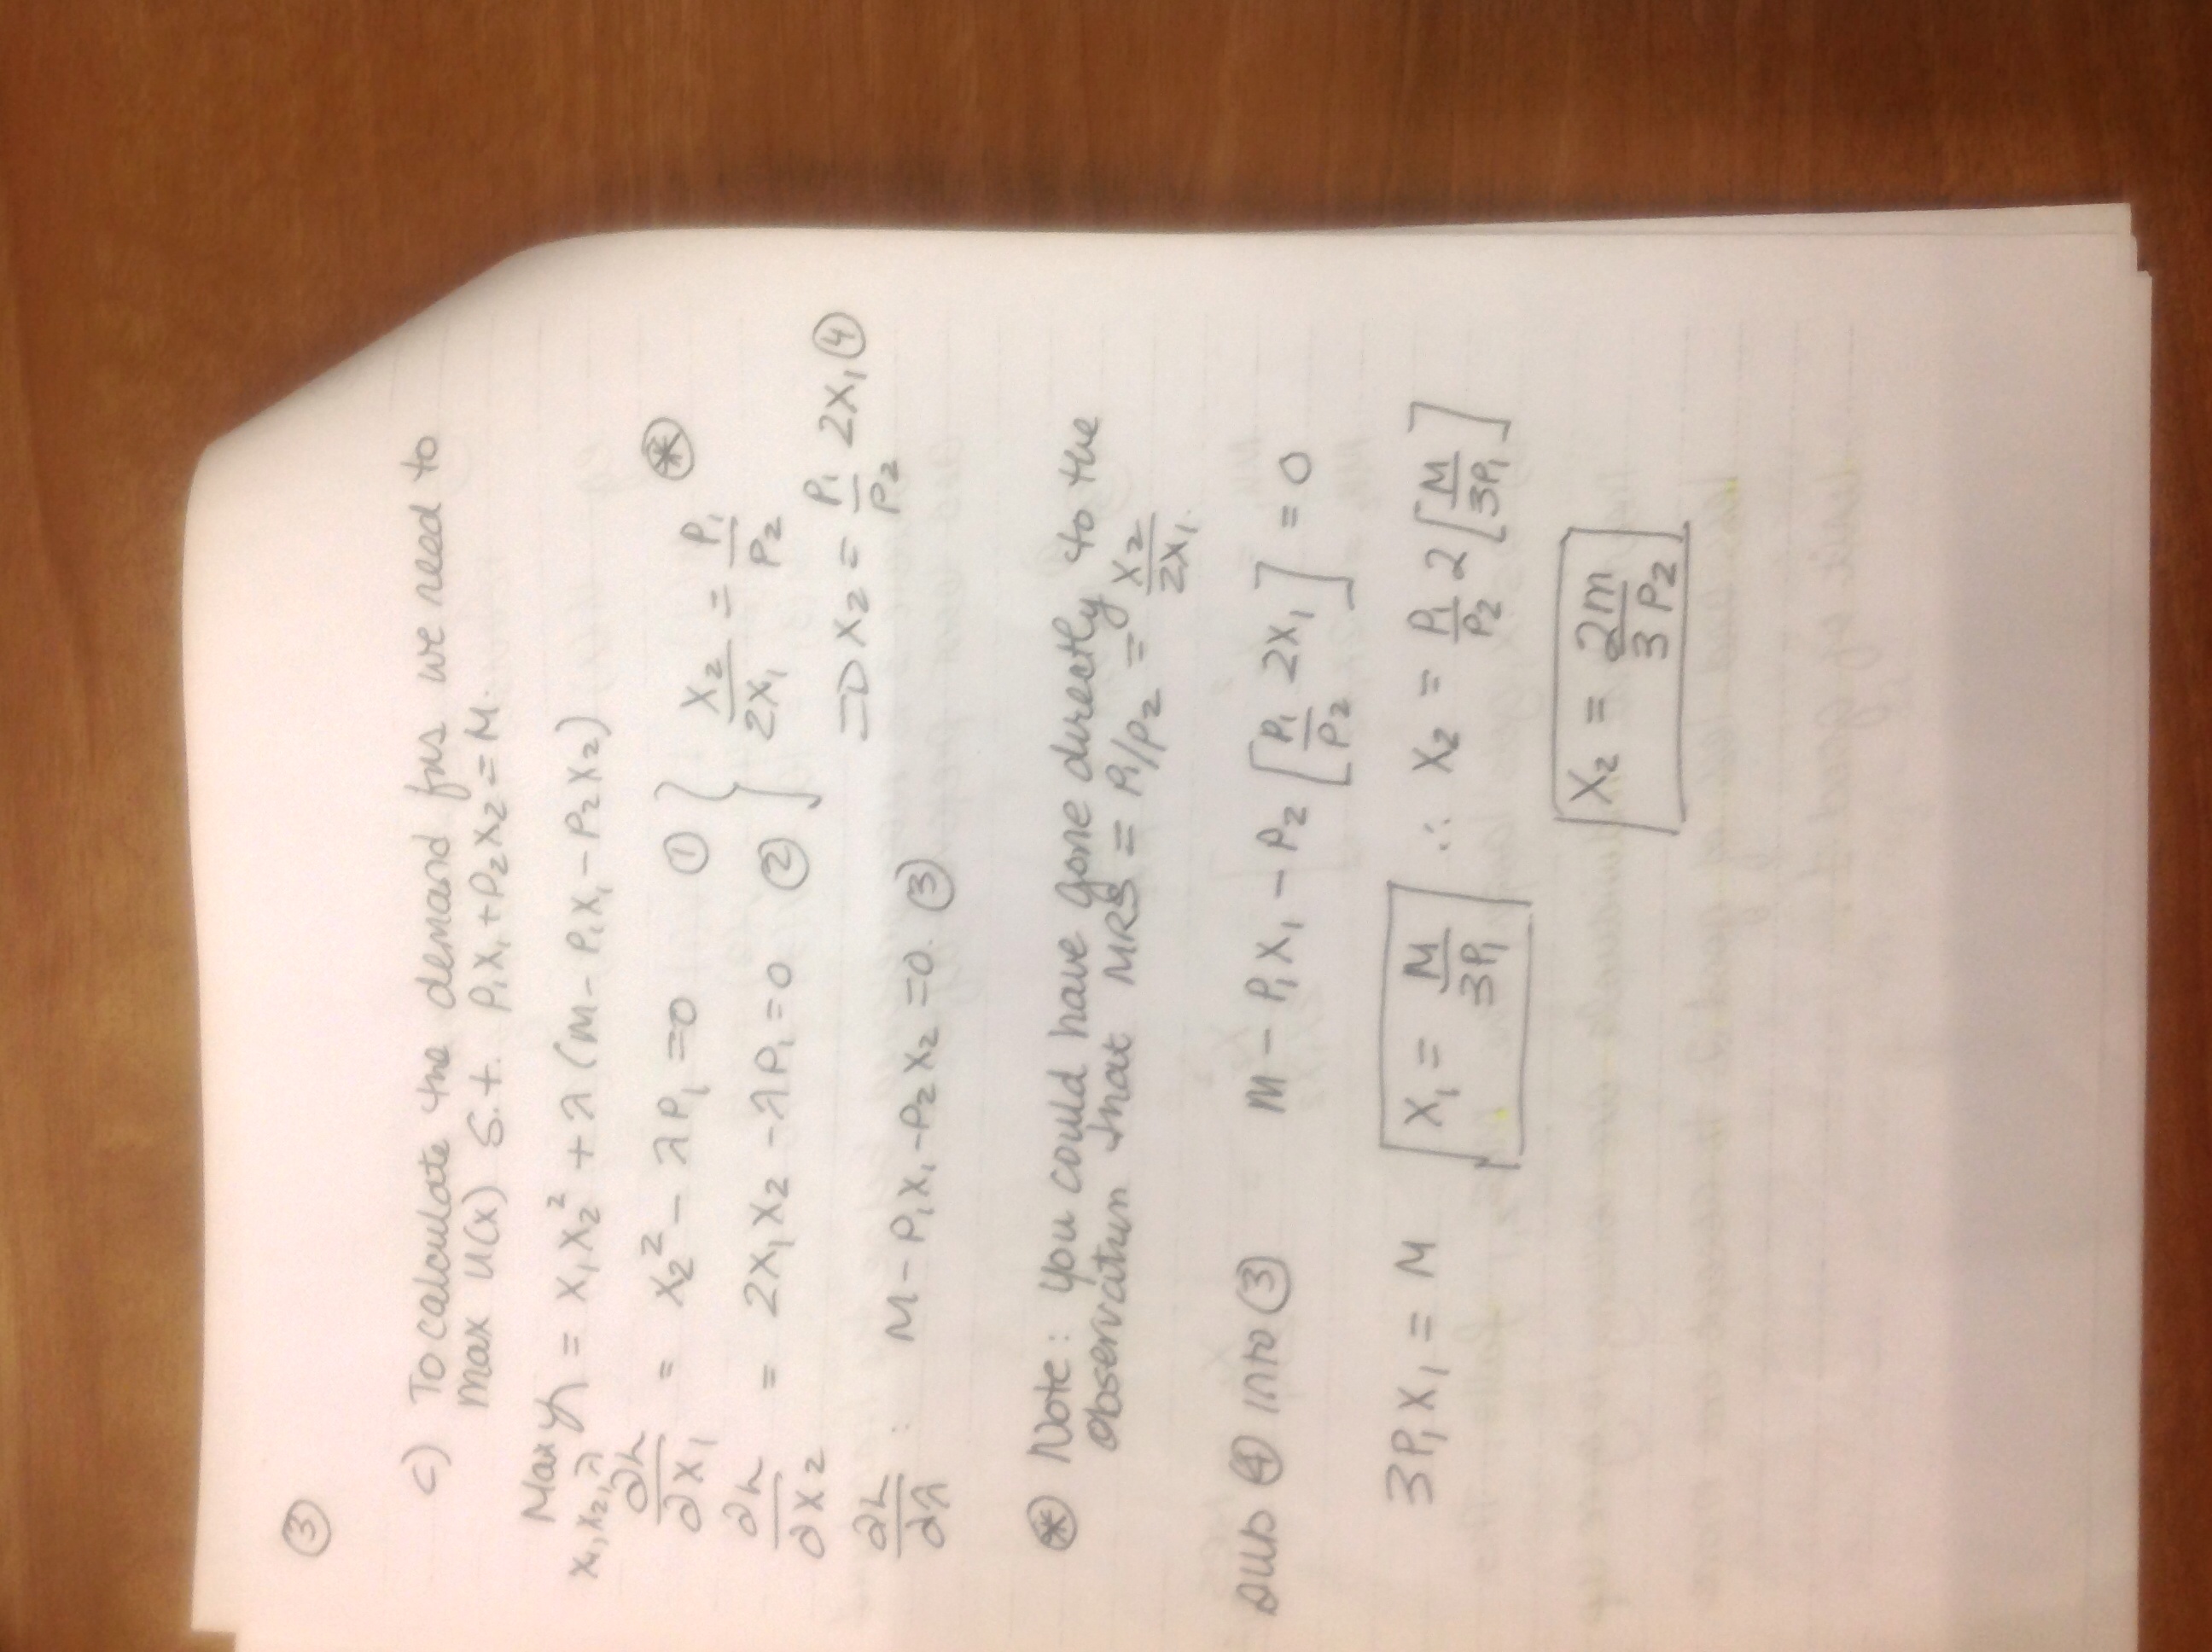 ③
c) To calculate the demand fns we need to
max U(x) s.t. P₁X₁+P₂X₂=M.
Max L = X₁X₂² + λ(M-P₁X₁-P₂X₂)
x₁,x₂,λ
∂L/∂X₁ = X₂² - λP₁ = 0 ① } X₂/2X₁ = P₁/P₂ ⊛
∂L/∂X₂ = 2X₁X₂ - λP₁ = 0 ② } => X₂ = P₁/P₂ 2X₁ ④
∂L/∂λ : M-P₁X₁-P₂X₂=0. ③
⊛ Note: you could have gone directly to the
observation that MRS = P₁/P₂ = X₂/2X₁.
sub ④ into ③ M-P₁X₁-P₂[P₁/P₂ 2X₁]=0
3P₁X₁ = M [X₁ = M/3P₁] ∴ X₂ = P₁/P₂ 2[M/3P₁]
[X₂ = 2m/3P₂]